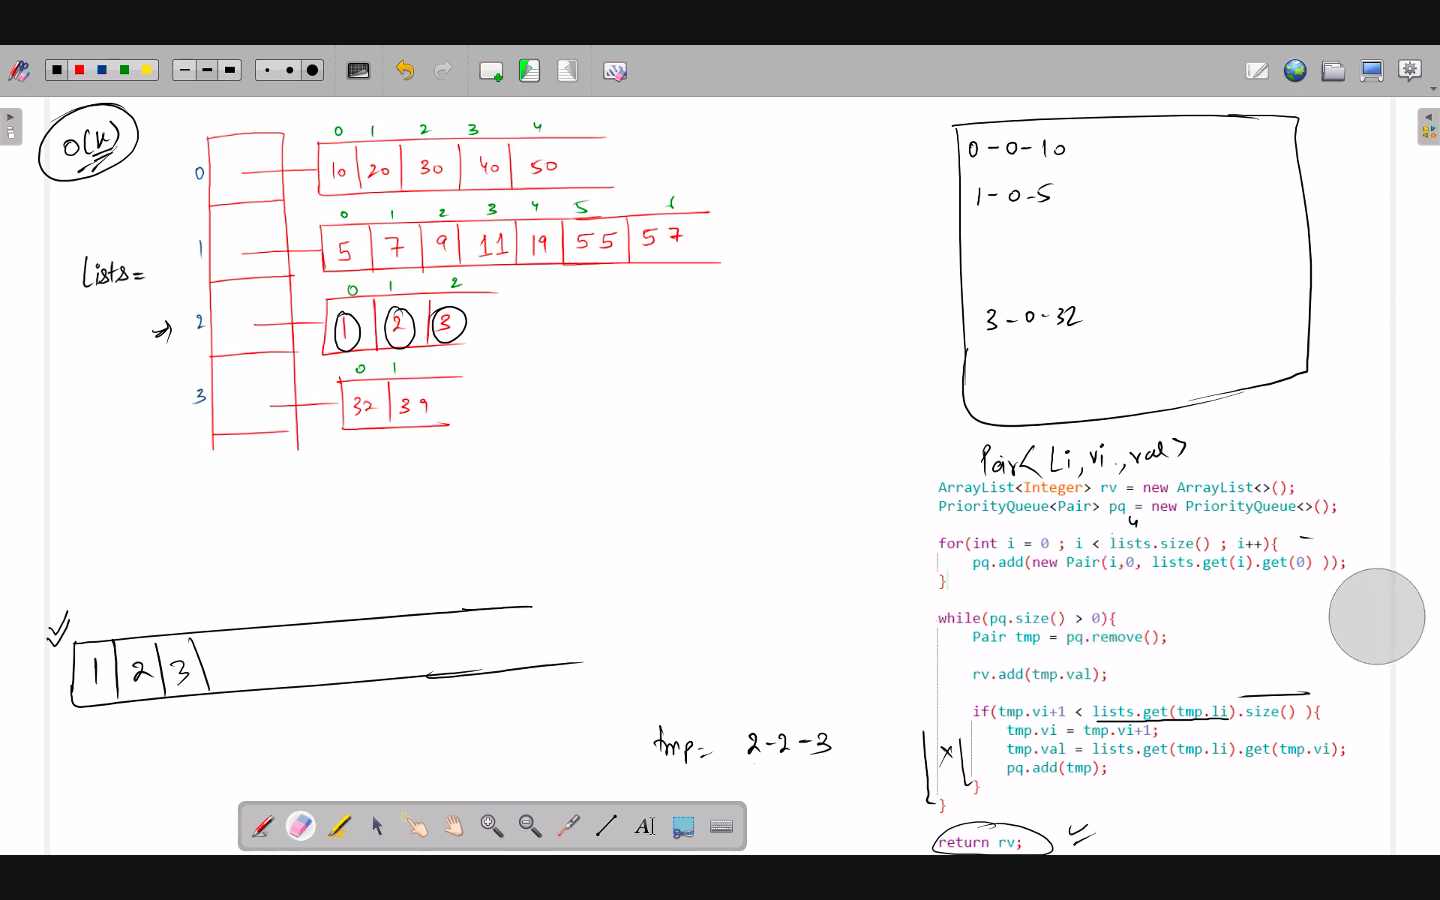 O(K)
0 1 2 3 4
0 10 20 30 40 50
0 1 2 3 4 5 6
1 5 7 9 11 19 55 57
Lists=
0 1 2
2 1 2 3
0 1
3 32 39
1 2 3
tmp= 2-2-3
0-0-10
1-0-5
3-0-32
Pair< Li, vi, val>
ArrayList<Integer> rv = new ArrayList<>();
PriorityQueue<Pair> pq = new PriorityQueue<>();
4
for(int i = 0 ; i < lists.size() ; i++){
pq.add(new Pair(i,0, lists.get(i).get(0) ));
}
while(pq.size() > 0){
Pair tmp = pq.remove();
rv.add(tmp.val);
if(tmp.vi+1 < lists.get(tmp.li).size() ){
tmp.vi = tmp.vi+1;
tmp.val = lists.get(tmp.li).get(tmp.vi);
pq.add(tmp);
}
}
return rv;